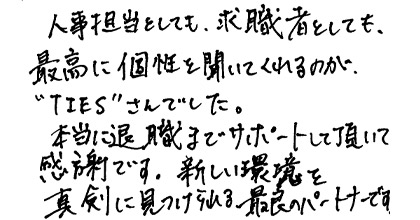 人事担当としても、求職者としても、
最高に個性を聞いてくれるのが、
"TIES"さんでした。
本当に退職までサポートして頂いて
感謝です。新しい環境を
真剣に見つけられる最良のパートナーです